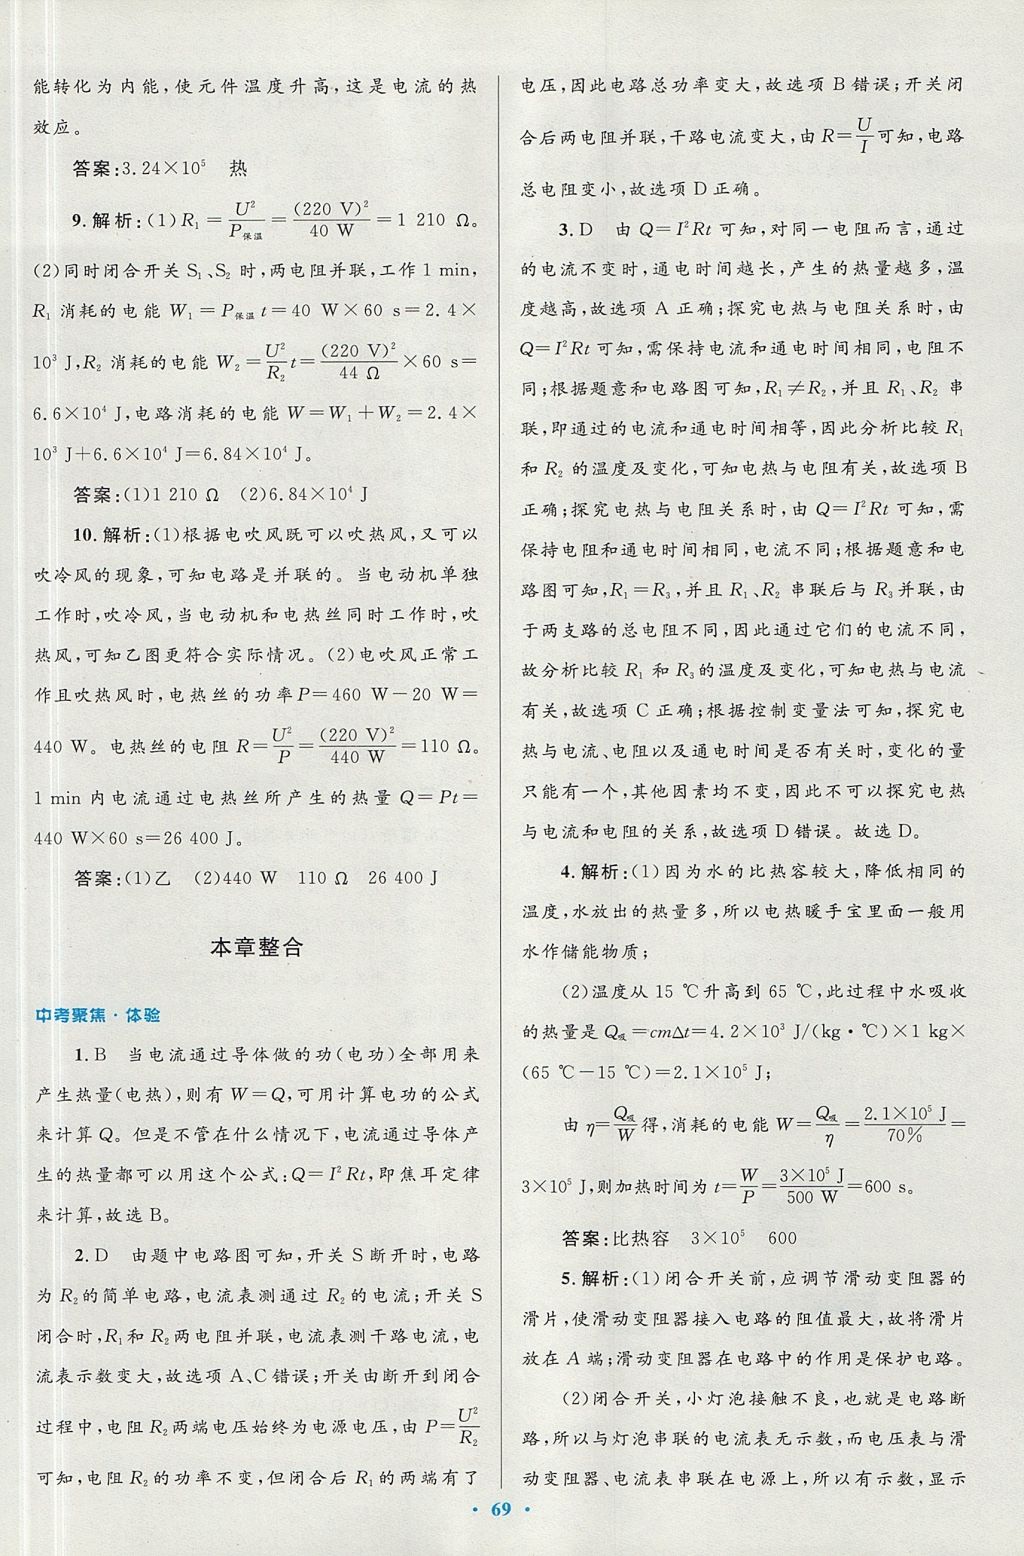 能转化为内能,使元件温度升高,这是电流的热
效应。
答案:3.24×10⁵ 热
9.解析:(1)R₁=U²/P保温=(220 V)²/40 W=1 210 Ω。
(2)同时闭合开关S₁、S₂时,两电阻并联,工作1 min,
R₁消耗的电能W₁=P保温t=40 W×60 s=2.4×
10³ J,R₂消耗的电能W₂=U²/R₂ t=(220 V)²/44 Ω×60 s=
6.6×10⁴ J,电路消耗的电能W=W₁+W₂=2.4×
10³ J+6.6×10⁴ J=6.84×10⁴ J。
答案:(1)1 210 Ω (2)6.84×10⁴ J
10.解析:(1)根据电吹风既可以吹热风,又可以
吹冷风的现象,可知电路是并联的。当电动机单独
工作时,吹冷风,当电动机和电热丝同时工作时,吹
热风,可知乙图更符合实际情况。(2)电吹风正常工
作且吹热风时,电热丝的功率P=460 W-20 W=
440 W。电热丝的电阻R=U²/P=(220 V)²/440 W=110 Ω。
1 min内电流通过电热丝所产生的热量Q=Pt=
440 W×60 s=26 400 J。
答案:(1)乙 (2)440 W 110 Ω 26 400 J
本章整合
中考聚焦·体验
1.B 当电流通过导体做的功(电功)全部用来
产生热量(电热),则有W=Q,可用计算电功的公式
来计算Q。但是不管在什么情况下,电流通过导体产
生的热量都可以用这个公式:Q=I²Rt,即焦耳定律
来计算,故选B。
2.D 由题中电路图可知,开关S断开时,电路
为R₂的简单电路,电流表测通过R₂的电流;开关S
闭合时,R₁和R₂两电阻并联,电流表测干路电流,电
流表示数变大,故选项A、C错误;开关由断开到闭合
过程中,电阻R₂两端电压始终为电源电压,由P=U²/R₂
可知,电阻R₂的功率不变,但闭合后R₁的两端有了
电压,因此电路总功率变大,故选项B错误;开关闭
合后两电阻并联,干路电流变大,由R=U/I可知,电路
总电阻变小,故选项D正确。
3.D 由Q=I²Rt可知,对同一电阻而言,通过
的电流不变时,通电时间越长,产生的热量越多,温
度越高,故选项A正确;探究电热与电阻关系时,由
Q=I²Rt可知,需保持电流和通电时间相同,电阻不
同;根据题意和电路图可知,R₁≠R₂,并且R₁、R₂串
联,即通过的电流和通电时间相等,因此分析比较R₁
和R₂的温度及变化,可知电热与电阻有关,故选项B
正确;探究电热与电流关系时,由Q=I²Rt可知,需
保持电阻和通电时间相同,电流不同;根据题意和电
路图可知,R₁=R₃,并且R₁、R₂串联后与R₃并联,由
于两支路的总电阻不同,因此通过它们的电流不同,
故分析比较R₁和R₃的温度及变化,可知电热与电流
有关,故选项C正确;根据控制变量法可知,探究电
热与电流、电阻以及通电时间是否有关时,变化的量
只能有一个,其他因素均不变,因此不可以探究电热
与电流和电阻的关系,故选项D错误。故选D。
4.解析:(1)因为水的比热容较大,降低相同的
温度,水放出的热量多,所以电热暖手宝里面一般用
水作储能物质;
(2)温度从15 ℃升高到65 ℃,此过程中水吸收
的热量是Q吸=cmΔt=4.2×10³ J/(kg·℃)×1 kg×
(65 ℃-15 ℃)=2.1×10⁵ J;
由η=Q吸/W得,消耗的电能W=Q吸/η=2.1×10⁵ J/70%=
3×10⁵ J,则加热时间为t=W/P=3×10⁵ J/500 W=600 s。
答案:比热容 3×10⁵ 600
5.解析:(1)闭合开关前,应调节滑动变阻器的
滑片,使滑动变阻器接入电路的阻值最大,故将滑片
放在A端;滑动变阻器在电路中的作用是保护电路。
(2)闭合开关,小灯泡接触不良,也就是电路断
路,所以与灯泡串联的电流表无示数,而电压表与滑
动变阻器、电流表串联在电源上,所以有示数,显示
·69·